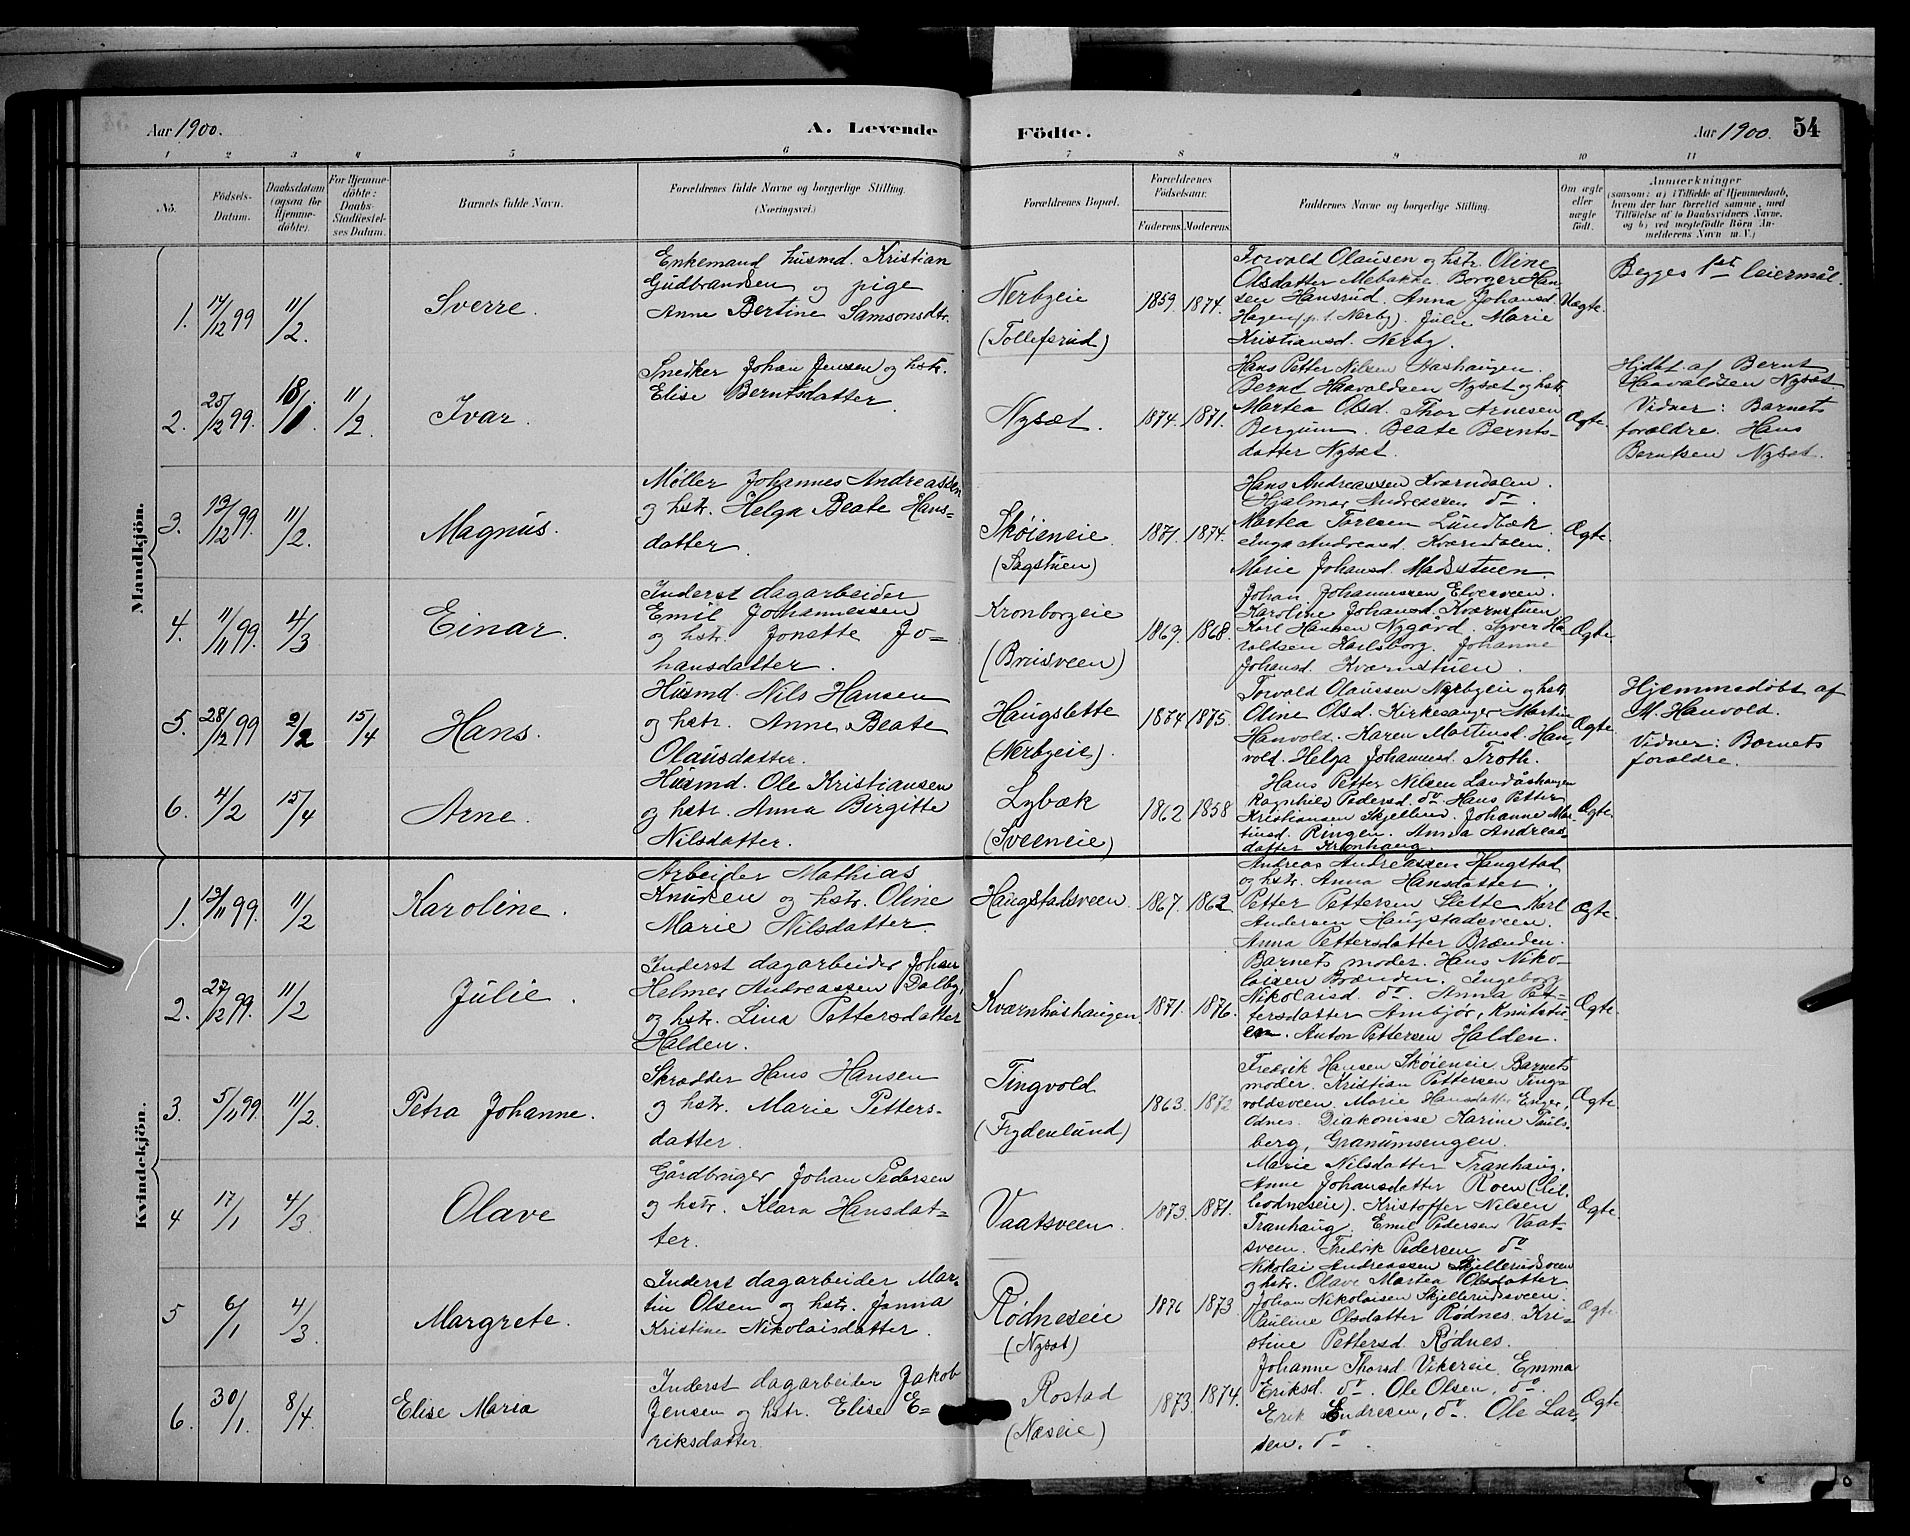 Aar 1900.
A. Levende
Födte.
Aar 1900. 54
1 2 3 4 5 6 7 8 9 10 11
No.
Födsels-
Datum.
Daabsdatum
(ogsaa for
Hjemme-
døbte).
For Hjemme-
døbte:
Daabs-
Stadfæstel-
ses Datum.
Barnets fulde Navn.
Forældrenes fulde Navne og borgerlige Stilling.
(Næringsvei.)
Forældrenes Bopæl.
Forældrenes
Födselsaar.
Faderens. Moderens.
Faddernes Navne og borgerlige Stilling.
Om ægte
eller
uægte
født.
Anmærkninger
(saasom: a) i Tilfælde af Hjemmedaab,
hvem der har forrettet samme, med
Tilføielse af to Daabsvidners Navne,
og b) ved uægtefødte Börn An-
melderens Navn m. V.)
Mandkjön.
1. 14/12 99 11/2. Sverre.
Enkemand husmd. Kristian
Gudbrandsen og pige
Anne Bertine Samsonsdtr.
Nerbyeie
(Tollefsrud)
1859. 1874.
Torvald Olausen og hstr. Oline
Olsdatter Mebakke. Borger Han-
sen Hansrud. Anna Johansd.
Hagen (p. t. Nerby). Julie Marie
Kristiansd. Nerby.
Uægte.
Begges 1ste leiermål.
2. 25/12 99. 18/1. 11/2. Ivar.
Snedker Johan Jensen og hstr.
Elise Berntsdatter.
Nysæt.
1874. 1871.
Hans Petter Nilsen Aashaugen.
Bernd Haavaldsen Nysæt og hstr.
Martea Olsd. Thor Arnesen
Bergum. Beate Bernts-
datter Nysæt.
Ægte.
Hjdøbt af Bernt
Haavaldsen Nysæt
Vidner: Barnets
forældre. Hans
Berntsen Nysæt.
3. 13/12 99. 11/2. Magnus.
Møller Johannes Andreassen
og hstr. Helga Beate Hans-
datter.
Skøieneie
(Sagstuen)
1871. 1874.
Hans Andreassen Kværndalen.
Hjalmar Andreassen do.
Martea Toresen Lundbæk
Inga Andreasd. Kværndalen.
Marie Johansd. Madsstuen.
Ægte.
4. 11/11 99. 4/3 Einar.
Inderst dagarbeider
Emil Johannessen
og hstr. Jonette Jo-
hansdatter.
Kronborgeie
(Brusveen)
1869. 1868.
Johan Johannessen Elvesveen.
Karoline Johansd. Kværnstuen
Karl Hansen Nygård. Syver Ha-
valdsen Karlsborg. Johanne
Johansd. Kværnstuen.
Ægte
5. 28/12 99 2/2 15/4 Hans.
Husmd. Nils Hansen
og hstr. Anne Beate
Olausdatter.
Haugslette
(Nerbyeie).
1874 1875.
Torvald Olaussen Nerbyeie og hstr
Oline Olsd. Kirkesanger Martin
Hanvold. Karen Martinsd. Han-
vold. Helga Johannsd. Troth.
Ægte
Hjemmedøbt af
M. Hanvold.
Vidner: Barnets
forældre.
6. 4/2 15/4 Arne.
Husmd. Ole Kristiansen
og hstr. Anna Birgitte
Nilsdatter.
Lybæk
(Sveeneie)
1862 1858
Hans Petter Nilsen Landåshaugen
Ragnhild Pedersd. do. Hans Petter
Kristiansen Skjellerud. Johanne Mar-
tinsd. Ringen. Anna Andreas-
datter Kronhaug.
Ægte.
Kvindekjön.
1. 13/11 99. 11/2 Karoline.
Arbeider Mathias
Knudsen og hstr. Oline
Marie Nilsdatter.
Haugstadsveen.
1867. 1862
Andreas Andreassen Haugstad
og hstr. Anna Hansdatter.
Petter Pettersen Slette. Karl
Andersen Haugstadsveen.
Anna Pettersdatter Brænden.
Ægte.
2. 27/12 99. 11/2 Julie.
Inderst dagarbeider Johan
Helmer Andreassen Dalby,
og hstr. Lina Pettersdatter
Halden.
Kværnhushaugen
1871. 1876.
Barnets moder. Hans Niko-
laisen Brænden. Ingeborg
Nikolaisd. do. Anna Pet-
tersdatter Ambjør, Knutstu-
en. Anton Pettersen Halden.
Ægte.
3. 5/11 99. 11/2. Petra Johanne.
Skrædder Hans Hansen
og hstr. Marie Petters-
datter.
Tingvold
(Frydenlund)
1863. 1872
Fredrik Hansen Skøieneie Barnets
moder. Kristian Pettersen Ting-
voldsveen Marie Hansdatter Enger,
Odnes. Diakonisse Karine Pauls-
berg, Granumsengen.
Ægte.
4 17/1 4/3 Olave
Gårdbruger Johan Pedersen
og hstr. Klara Hansdat-
ter.
Vaatsveen.
1873. 1871.
Marie Nilsdatter Tranhaug.
Anne Johansdatter Roen (Lil-
leodneseie). Kristoffer Nilsen
Tranhaug. Emil Pedersen Vaat-
sveen. Fredrik Pedersen do
Ægte.
5 6/1 4/3 Margrete.
Inderst dagarbeider Mar-
tin Olsen og hstr. Janna
Kristine Nikolaisdatter.
Rødneseie
(Nysæt)
1876 1873
Nikolai Andreassen Skjellerudsveen
og hstr. Olave Martea Olsdatter
Johan Nikolaisen Skjellerudsveen.
Pauline Olsdatter Rødnes. Kri-
stine Pettersd. Rødnes.
Ægte
6. 30/1 8/4 Elise Maria
Inderst dagarbeider Jakob
Jensen og hstr. Elise E-
riksdatter
Rostad
(Næseie)
1873. 1874.
Johanne Thorsd. Vikereie. Emma
Eriksd. do. Ole Olsen, do.
Erik Endresen, do. Ole Lar-
sen. do.
Ægte